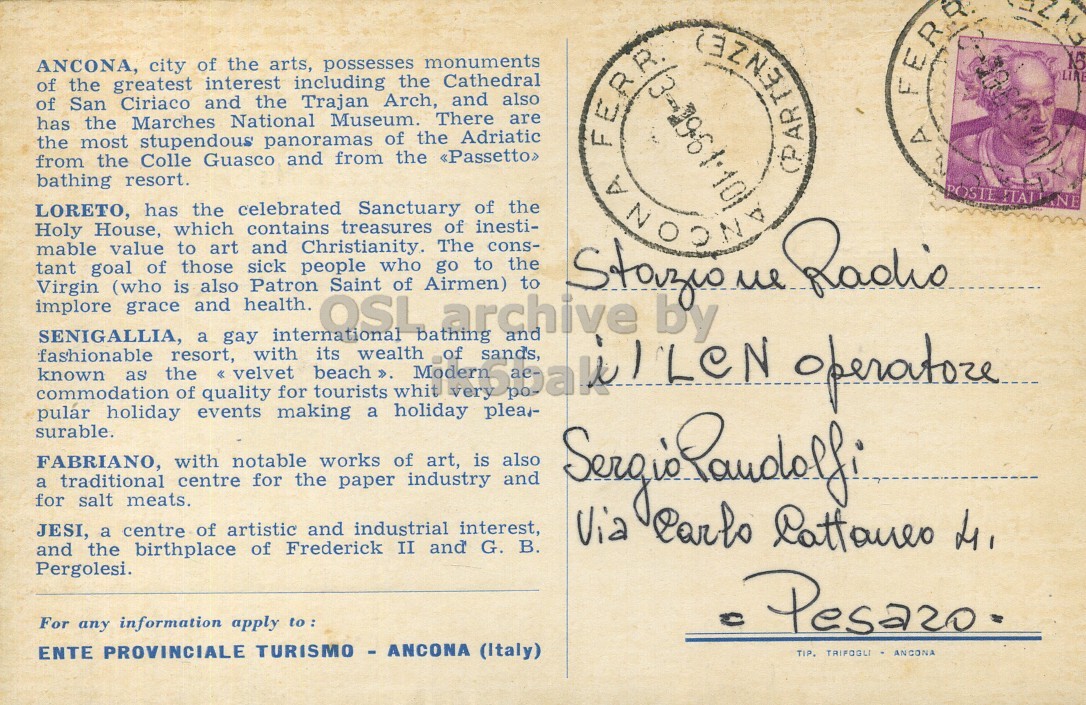 ANCONA, city of the arts, possesses monuments
of the greatest interest including the Cathedral
of San Ciriaco and the Trajan Arch, and also
has the Marches National Museum. There are
the most stupendous panoramas of the Adriatic
from the Colle Guasco and from the «Passetto»
bathing resort.
LORETO, has the celebrated Sanctuary of the
Holy House, which contains treasures of inesti-
mable value to art and Christianity. The cons-
tant goal of those sick people who go to the
Virgin (who is also Patron Saint of Airmen) to
implore grace and health.
SENIGALLIA, a gay international bathing and
fashionable resort, with its wealth of sands,
known as the « velvet beach ». Modern ac-
commodation of quality for tourists whit very po-
pular holiday events making a holiday plea-
surable.
FABRIANO, with notable works of art, is also
a traditional centre for the paper industry and
for salt meats.
JESI, a centre of artistic and industrial interest,
and the birthplace of Frederick II and G. B.
Pergolesi.
For any information apply to :
ENTE PROVINCIALE TURISMO - ANCONA (Italy)
ANCONA FERR. (PARTENZE)
NA FERR.
15
LIRE
POSTE ITALIANE
Stazione Radio
i1LCN operatore
Sergio Pandolfi
Via Carlo Cattaneo 4.
= Pesaro =
TIP. TRIFOGLI - ANCONA
QSL archive by
ik6bak